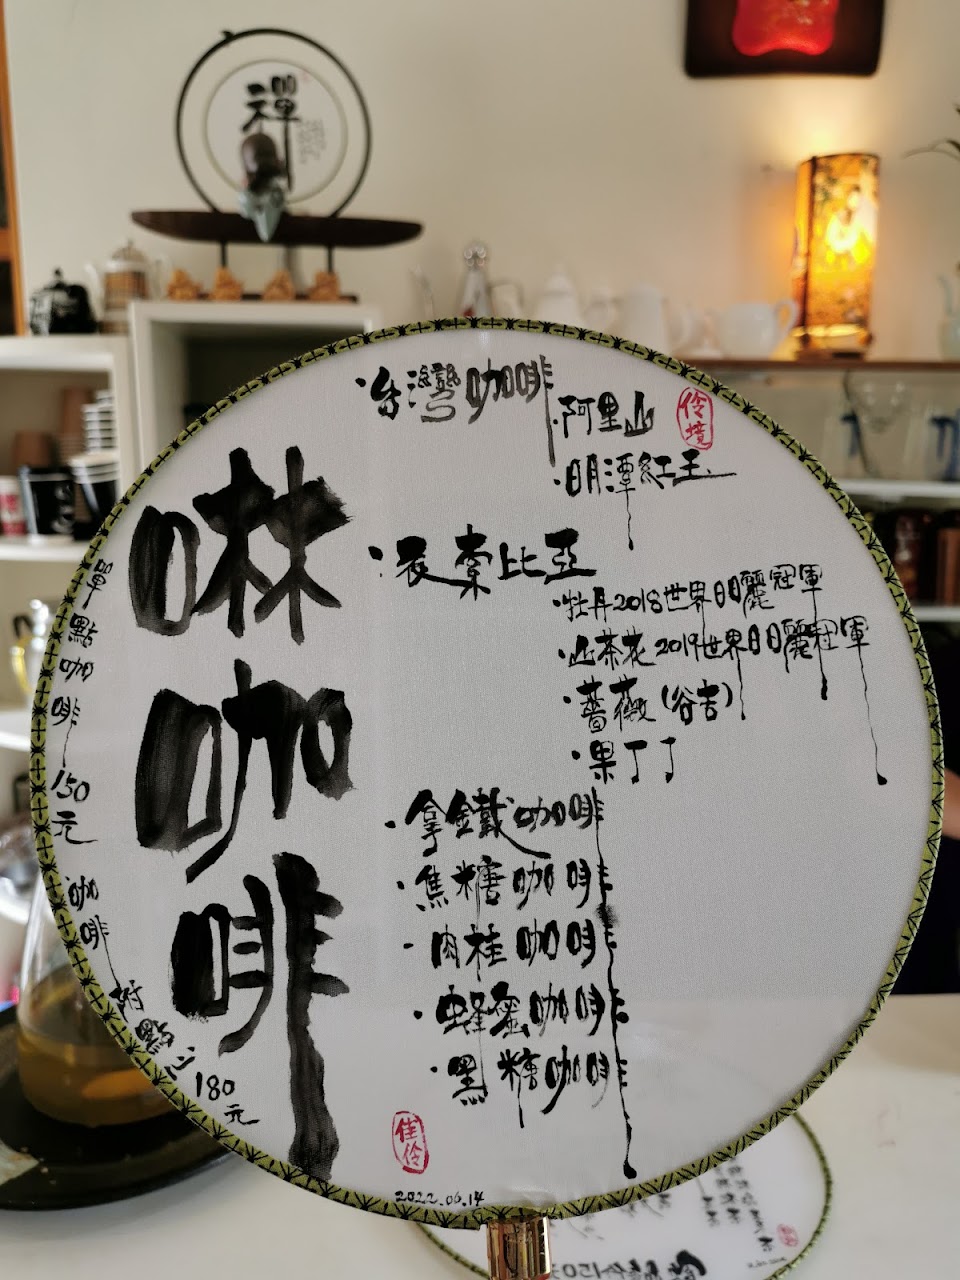 禪
台灣咖啡
·阿里山
·明潭紅玉
伶境
啉咖啡
·衣索比亞
·牡丹2018世界日曬冠軍
·山茶花2019世界日曬冠軍
·薔薇(谷吉)
·果丁丁
·拿鐵咖啡
·焦糖咖啡
·肉桂咖啡
·蜂蜜咖啡
·黑糖咖啡
單點咖啡150元
咖啡附點心180元
佳伶
2022.06.14